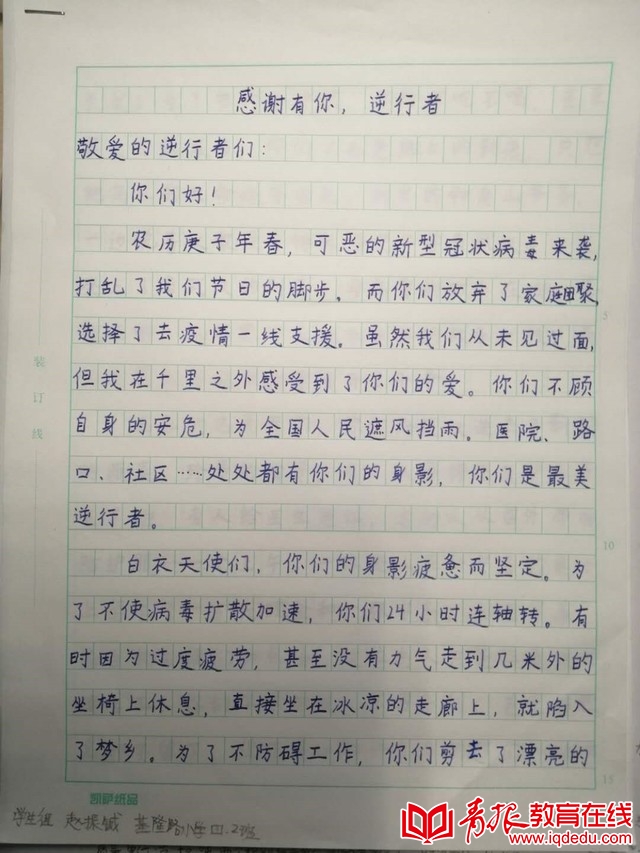 感谢有你，逆行者
敬爱的逆行者们：
你们好！
农历庚子年春，可恶的新型冠状病毒来袭，
打乱了我们节日的脚步。而你们放弃了家庭团聚，
选择了去疫情一线支援。虽然我们从未见过面，
但我在千里之外感受到了你们的爱。你们不顾
自身的安危，为全国人民遮风挡雨。医院、路
口、社区……处处都有你们的身影，你们是最美
逆行者。
白衣天使们，你们的身影疲惫而坚定。为
了不使病毒扩散加速，你们24小时连轴转。有
时因为过度疲劳，甚至没有力气走到几米外的
坐椅上休息，直接坐在冰凉的走廊上，就陷入
了梦乡。为了不防碍工作，你们剪去了漂亮的
装订线
5
10
15
凯萨纸品
学生组 赵振 基隆路小学四.2班
青报教育在线
www.iqdedu.com